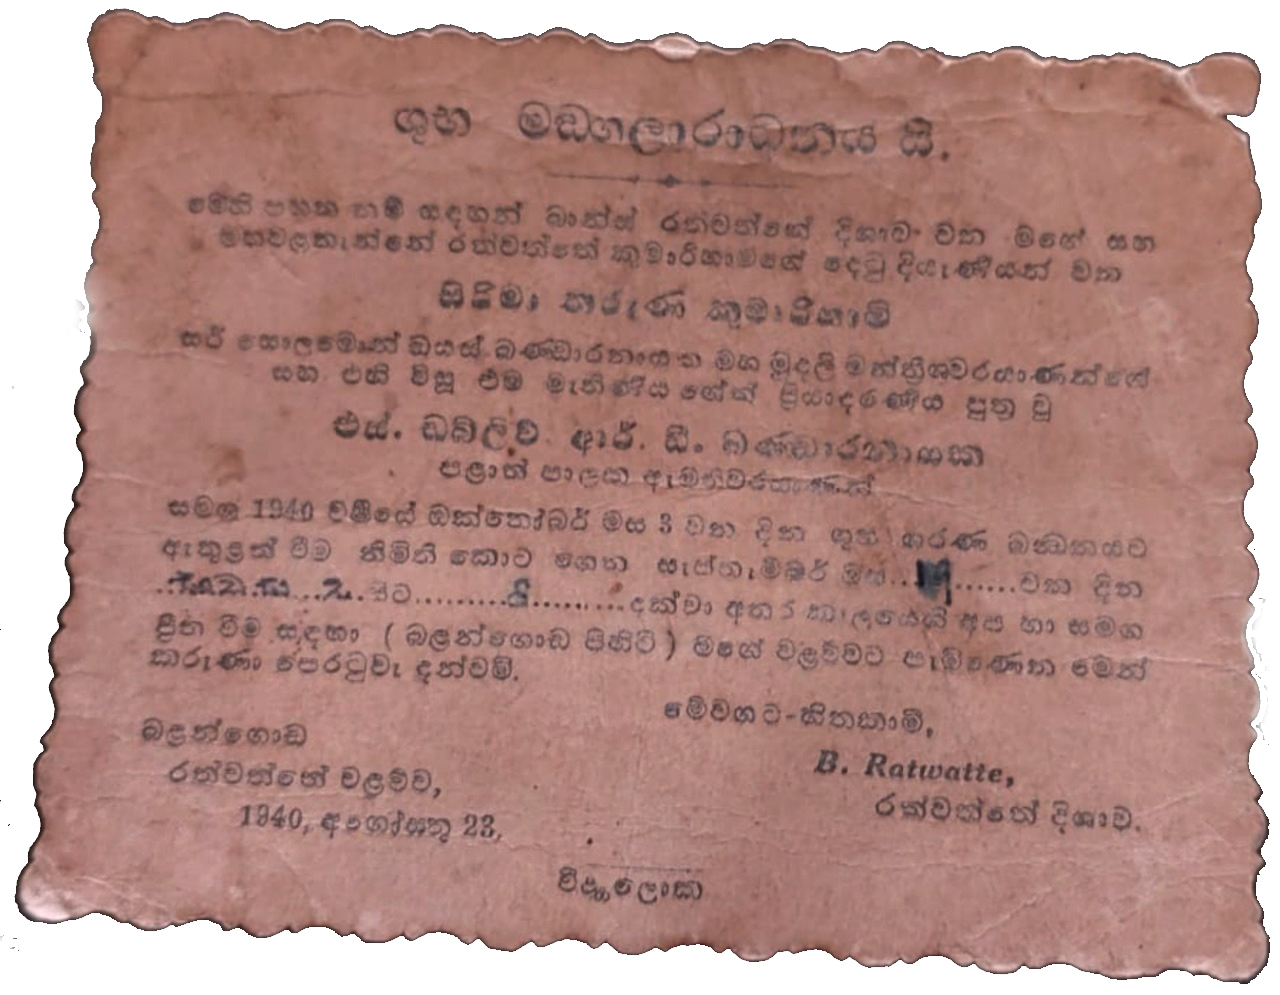 ශුභ මඞගලාරාධනය යි.
මෙහි පහත නම් සඳහන් බාන්ස් රත්වත්තේ දිශාව වන මගේ සහ
මහවලතැන්නේ රත්වත්තේ කුමාරිහාමිගේ දෙටු දියැණියන් වන
සිරිමා තරුණ කුමාරිහාමි
සර් සොලමොන් ඩයස් බණ්ඩාරනායක මහ මුදලි මන්ත්‍රීශවරයාණන්ගේ
සහ එහි විසූ එම මැතිණිය ගේත් ප්‍රියාදරණීය පුත්‍ර වූ
එස්. ඩබ්ලිව්. ආර්. ඩී. බණ්ඩාරනායක
පළාත් පාලන ඇමතිවරයාණන්
සමග 1940 වර්‍ෂයේ ඔක්තෝබර් මස 3 වන දින ශුභ සරණ බන්‍ධනයට
ඇතුළත් වීම නිමිති කොට ගෙන සැප්තැම්බර් මස ... වන දින
... 2 සිට ... දක්වා අතර කාලයෙහි අප හා සමග
ප්‍රීත වීම සඳහා ( බළන්ගොඩ පිහිටි ) මගේ වළව්වට පැමිණෙන මෙන්
කරුණා පෙරටුවැ දන්වමි.
මේවගට-හිතකාමී,
B. Ratwatte,
රත්වත්තේ දිශාව.
බළන්ගොඩ
රත්වත්තේ වළව්ව,
1940, අගෝස්තු 23,
විද්‍යාලොක